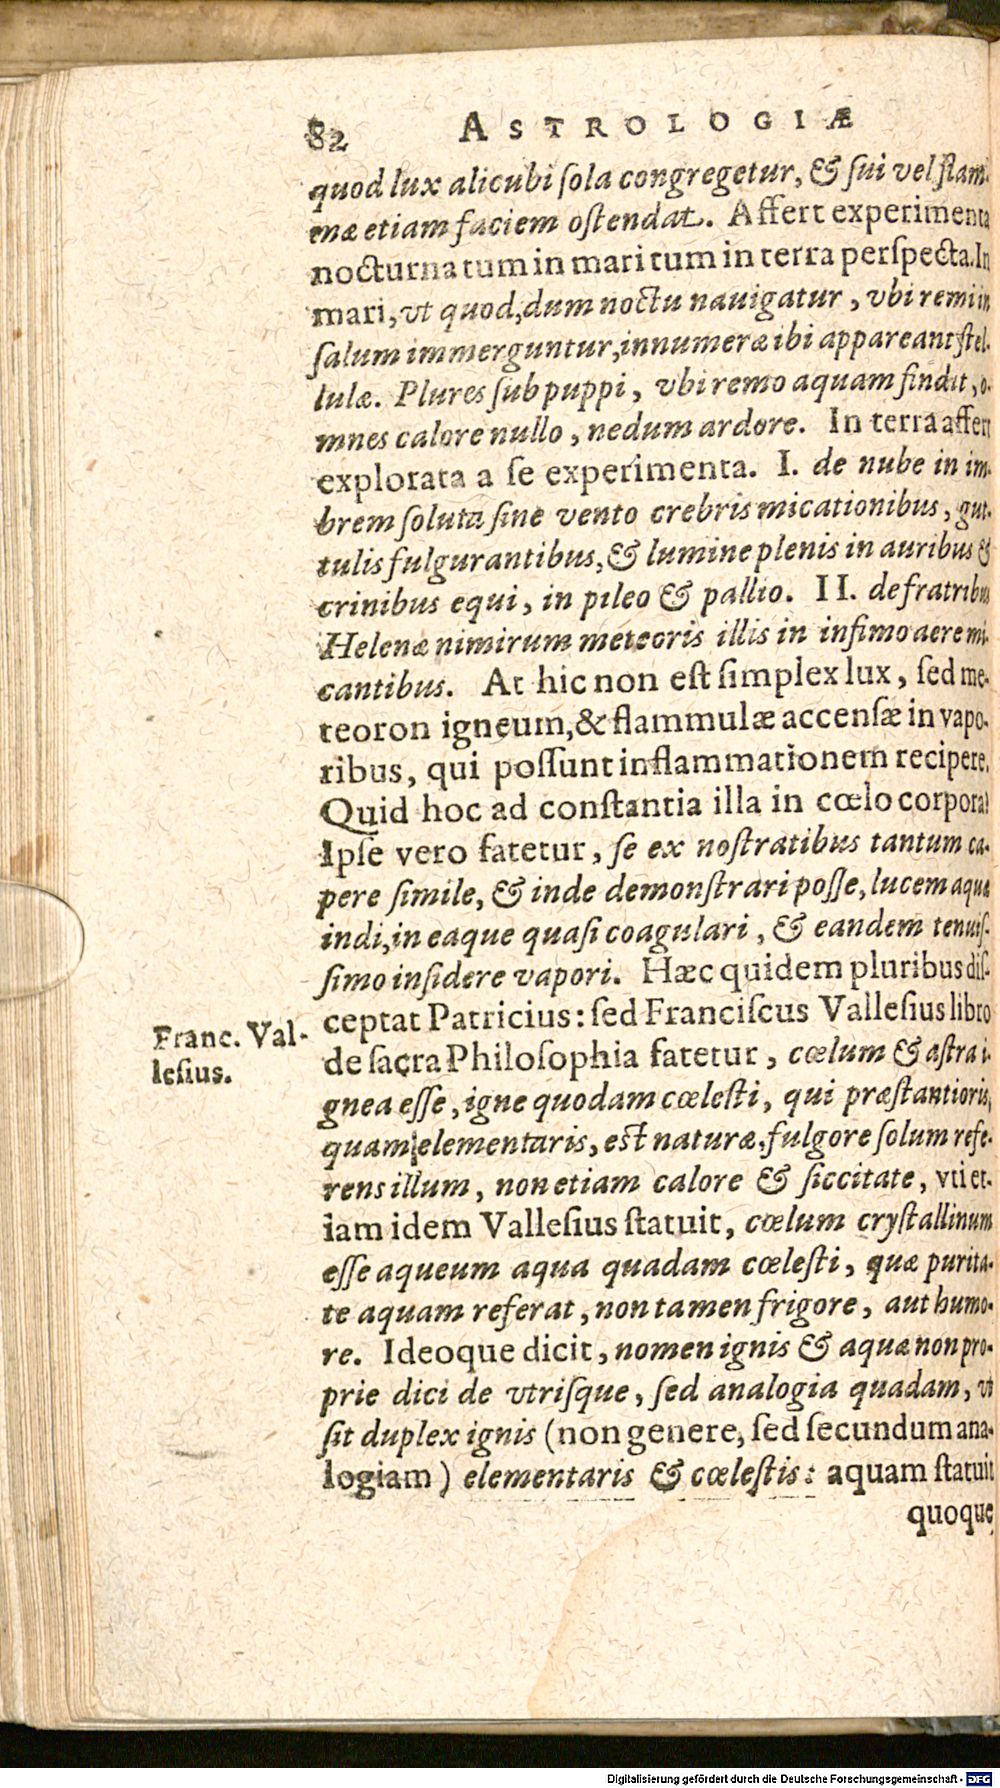 82 ASTROLOGIÆ
quod lux alicubi ſola congregetur, & ſui vel flam-
mæ etiam faciem oſtendat. Affert experimenta
nocturna tum in mari tum in terra perſpecta. In
mari, vt quod, dum noctu nauigatur, vbi remi in
ſalum immerguntur, innumeræ ibi appareant ſtel-
lulæ. Plures ſub puppi, vbi remo aquam findit, o-
mnes calore nullo, nedum ardore. In terra affert
explorata a ſe experimenta. I. de nube in im-
brem ſoluta ſine vento crebris micationibus, gut-
tulis fulgurantibus, & lumine plenis in auribus &
crinibus equi, in pileo & pallio. II. de fratribus
Helenæ nimirum meteoris illis in infimo aere mi-
cantibus. At hic non eſt ſimplex lux, ſed me-
teoron igneum, & flammulæ accenſæ in vapo-
ribus, qui poſſunt inflammationem recipere.
Quid hoc ad conſtantia illa in cœlo corpora?
Ipſe vero fatetur, ſe ex noſtratibus tantum ca-
pere ſimile, & inde demonſtrari poſſe, lucem aquæ
indi, in eaque quaſi coagulari, & eandem tenuiſ-
ſimo inſidere vapori. Hæc quidem pluribus diſ-
ceptat Patricius: ſed Franciſcus Valleſius libro
Franc. Val-
leſius.
de ſacra Philoſophia fatetur, cœlum & aſtra i-
gnea eſſe, igne quodam cœleſti, qui præſtantioris,
quam elementaris, eſt naturæ, fulgore ſolum refe-
rens illum, non etiam calore & ſiccitate, vti et-
iam idem Valleſius ſtatuit, cœlum cryſtallinum
eſſe aqueum aqua quadam cœleſti, quæ purita-
te aquam referat, non tamen frigore, aut humo-
re. Ideoque dicit, nomen ignis & aquæ non pro-
prie dici de vtriſque, ſed analogia quadam, vt
ſit duplex ignis (non genere, ſed ſecundum ana-
logiam) elementaris & cœleſtis: aquam ſtatuit
quoque
Digitalisierung gefördert durch die Deutsche Forschungsgemeinschaft - DFG